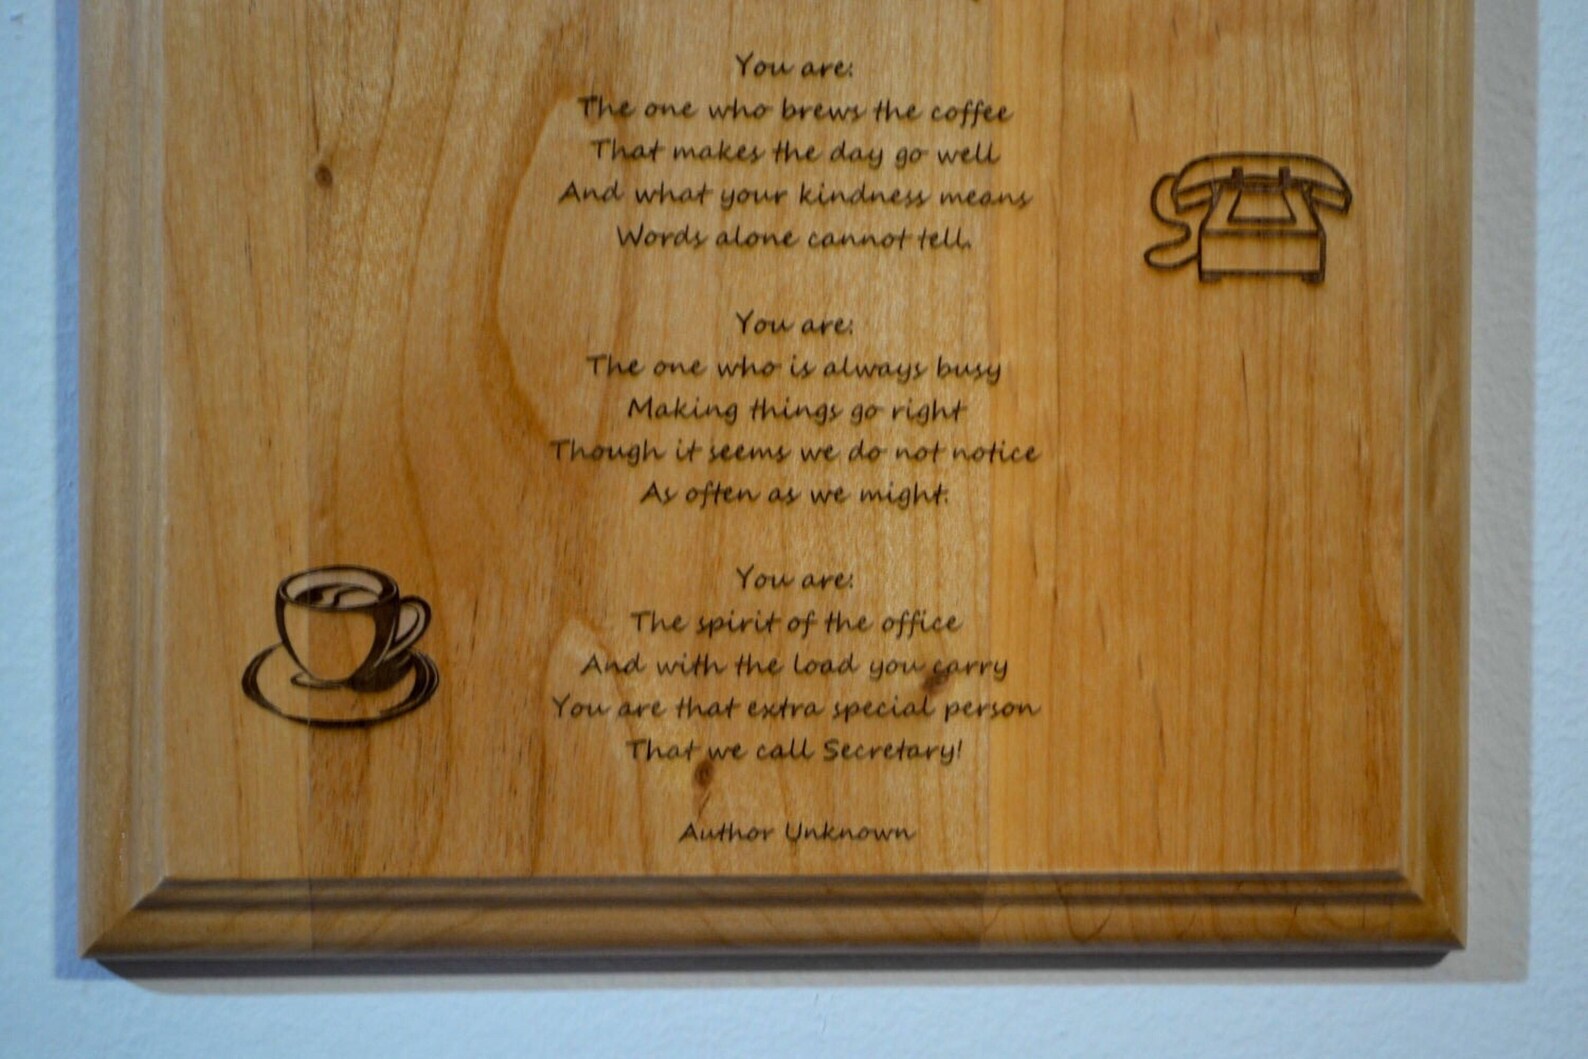 You are:
The one who brews the coffee
That makes the day go well
And what your kindness means
Words alone cannot tell.
You are:
The one who is always busy
Making things go right
Though it seems we do not notice
As often as we might.
You are:
The spirit of the office
And with the load you carry
You are that extra special person
That we call Secretary!
Author Unknown